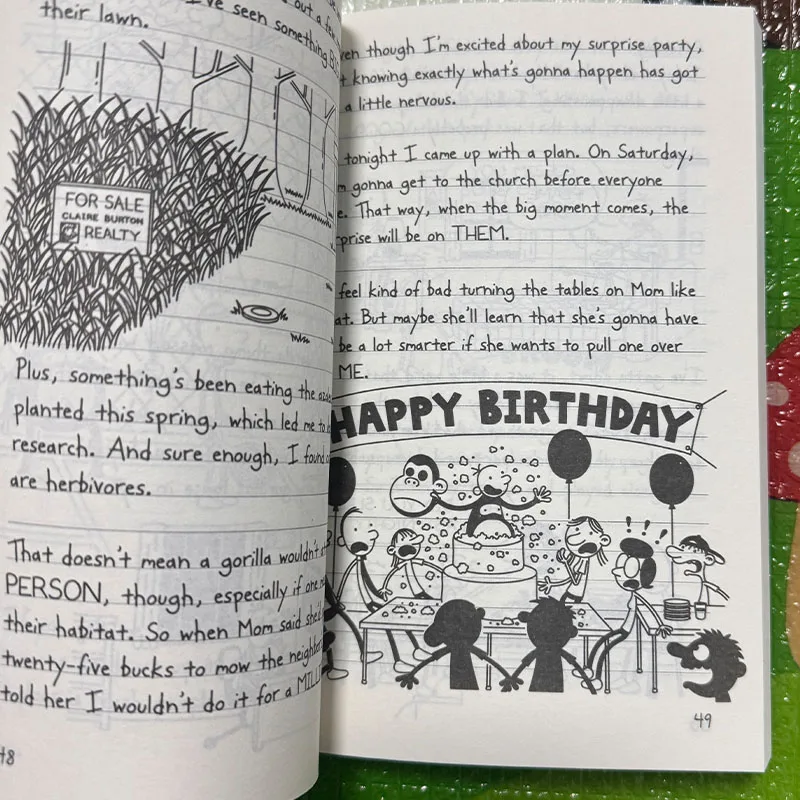 their lawn.
I've seen something
out a few
FOR SALE
CLAIRE BURTON
REALTY
Plus, something's been eating the
planted this spring, which led me to
research. And sure enough, I found
are herbivores.
That doesn't mean a gorilla wouldn't
PERSON, though, especially if one
their habitat. So when Mom said she'd
twenty-five bucks to mow the
told her I wouldn't do it for a
48
ven though I'm excited about my surprise party,
t knowing exactly what's gonna happen has got
a little nervous.
tonight I came up with a plan. On Saturday,
m gonna get to the church before everyone
e. That way, when the big moment comes, the
prise will be on THEM.
feel kind of bad turning the tables on Mom like
at. But maybe she'll learn that she's gonna have
be a lot smarter if she wants to pull one over
ME.
HAPPY BIRTHDAY
! ! ! !
49